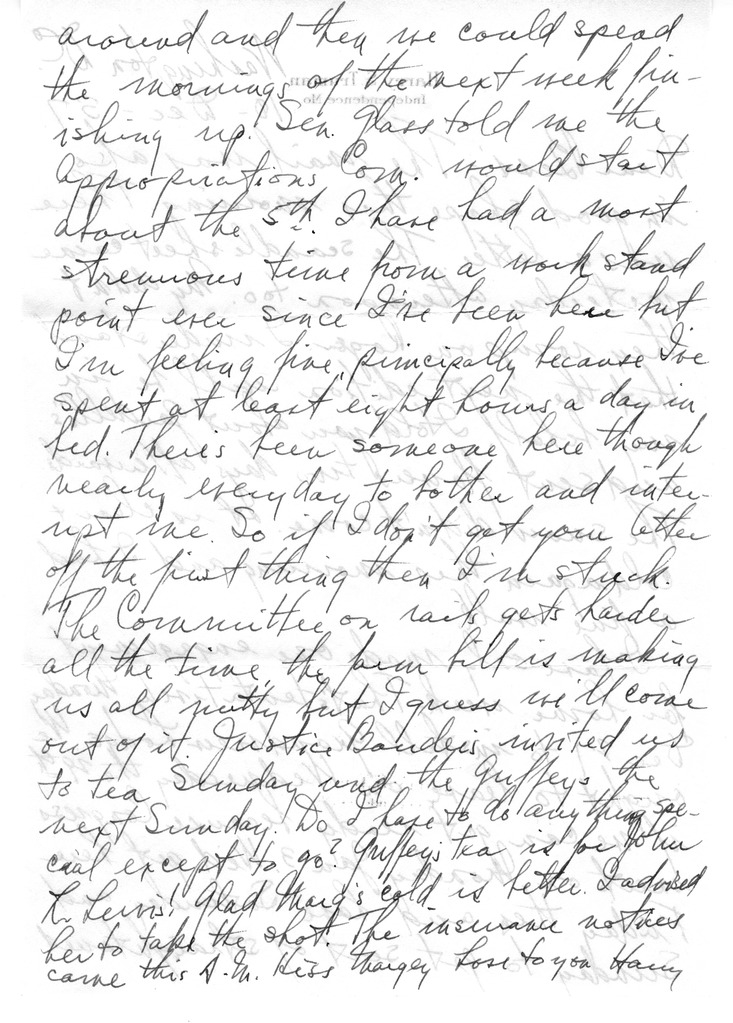 around and then we could spend
the mornings of the next week fin-
ishing up. Sen. Glass told me the
Appropriations Com. would start
about the 5th. I have had a most
strenuous time from a work stand
point ever since I've been here but
I'm feeling fine, principally because I've
spent at least eight hours a day in
bed. There's been someone here though
nearly everyday to bother and inter-
rupt me. So if I don't get your letter
off the first thing then I'm stuck.
The Committee on rails gets harder
all the time, the farm bill is making
us all nutty but I guess we'll come
out of it. Justice Bandeis invited us
to tea Sunday and the Guffeys the
next Sunday. Do I have to do anything spe-
cial except to go? Guffey's tea is for John
L. Lewis! Glad Marg's cold is better. I advised
her to take the shot. The insurance notices
came this A.M. Kiss Margey Love to you Harry